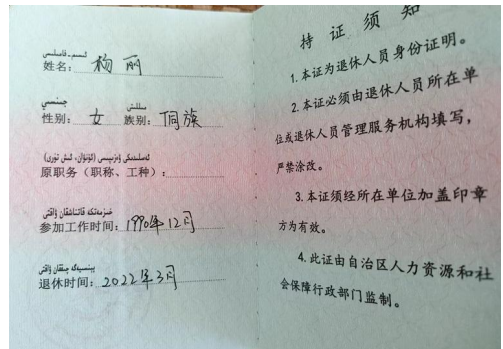 ئىسىم-فامىلىسى
姓名：杨丽
جىنسىي مىللىتى
性别：女 族别：侗族
ئەسلىدىكى ۋەزىپىسى (ئۇنۋان، ئىش تۈرى)
原职务（职称、工种）：
خىزمەتكە قاتناشقان ۋاقتى
参加工作时间：1990年12月
پېنسىيەگە چىققان ۋاقتى
退休时间：2022年3月
持证须知
1.本证为退休人员身份证明。
2.本证必须由退休人员所在单
位或退休人员管理服务机构填写，
严禁涂改。
3.本证须经所在单位加盖印章
方为有效。
4.此证由自治区人力资源和社
会保障行政部门监制。